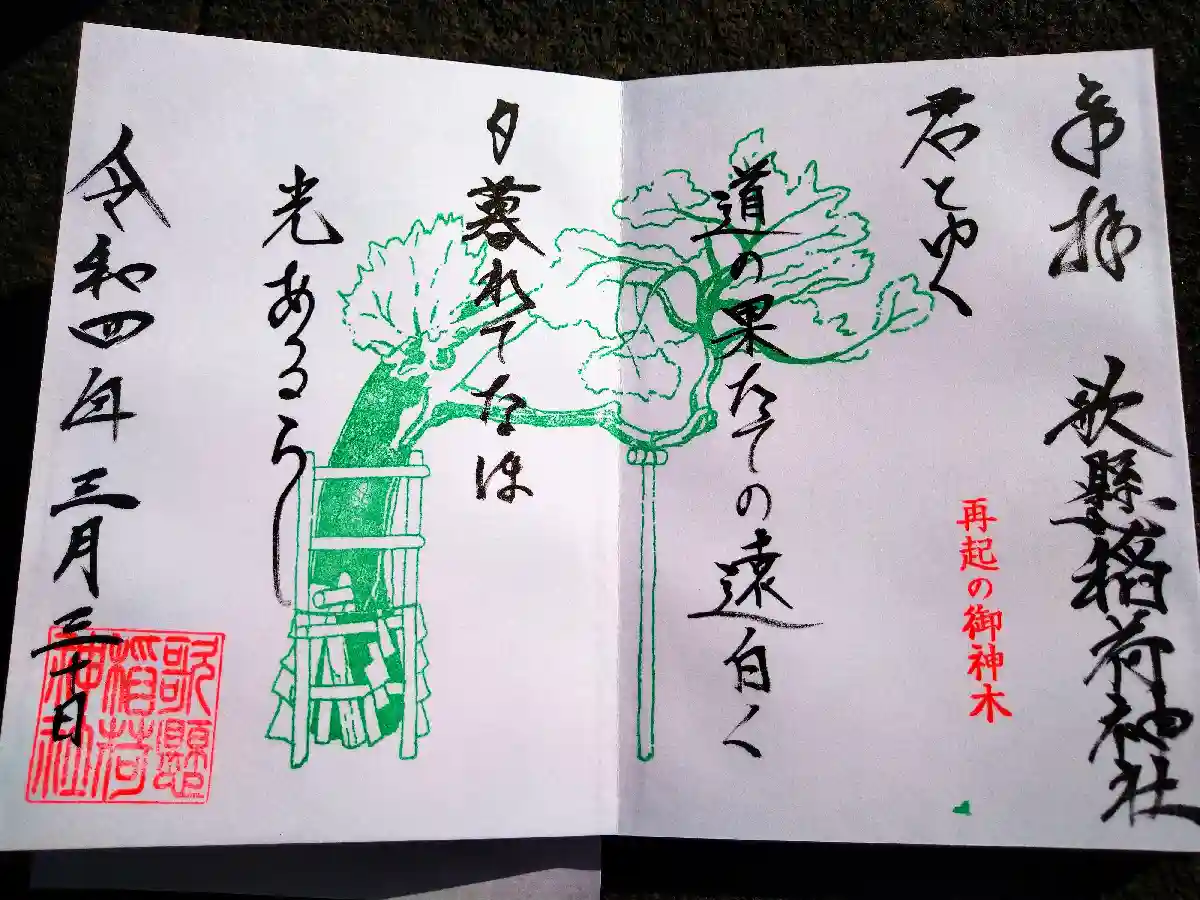 奉拝 歌懸稲荷神社
再起の御神木
君とゆく
道の果たての遠白く
夕暮れてなほ
光あるらし
令和四年三月三十日
歌懸
稲荷
神社